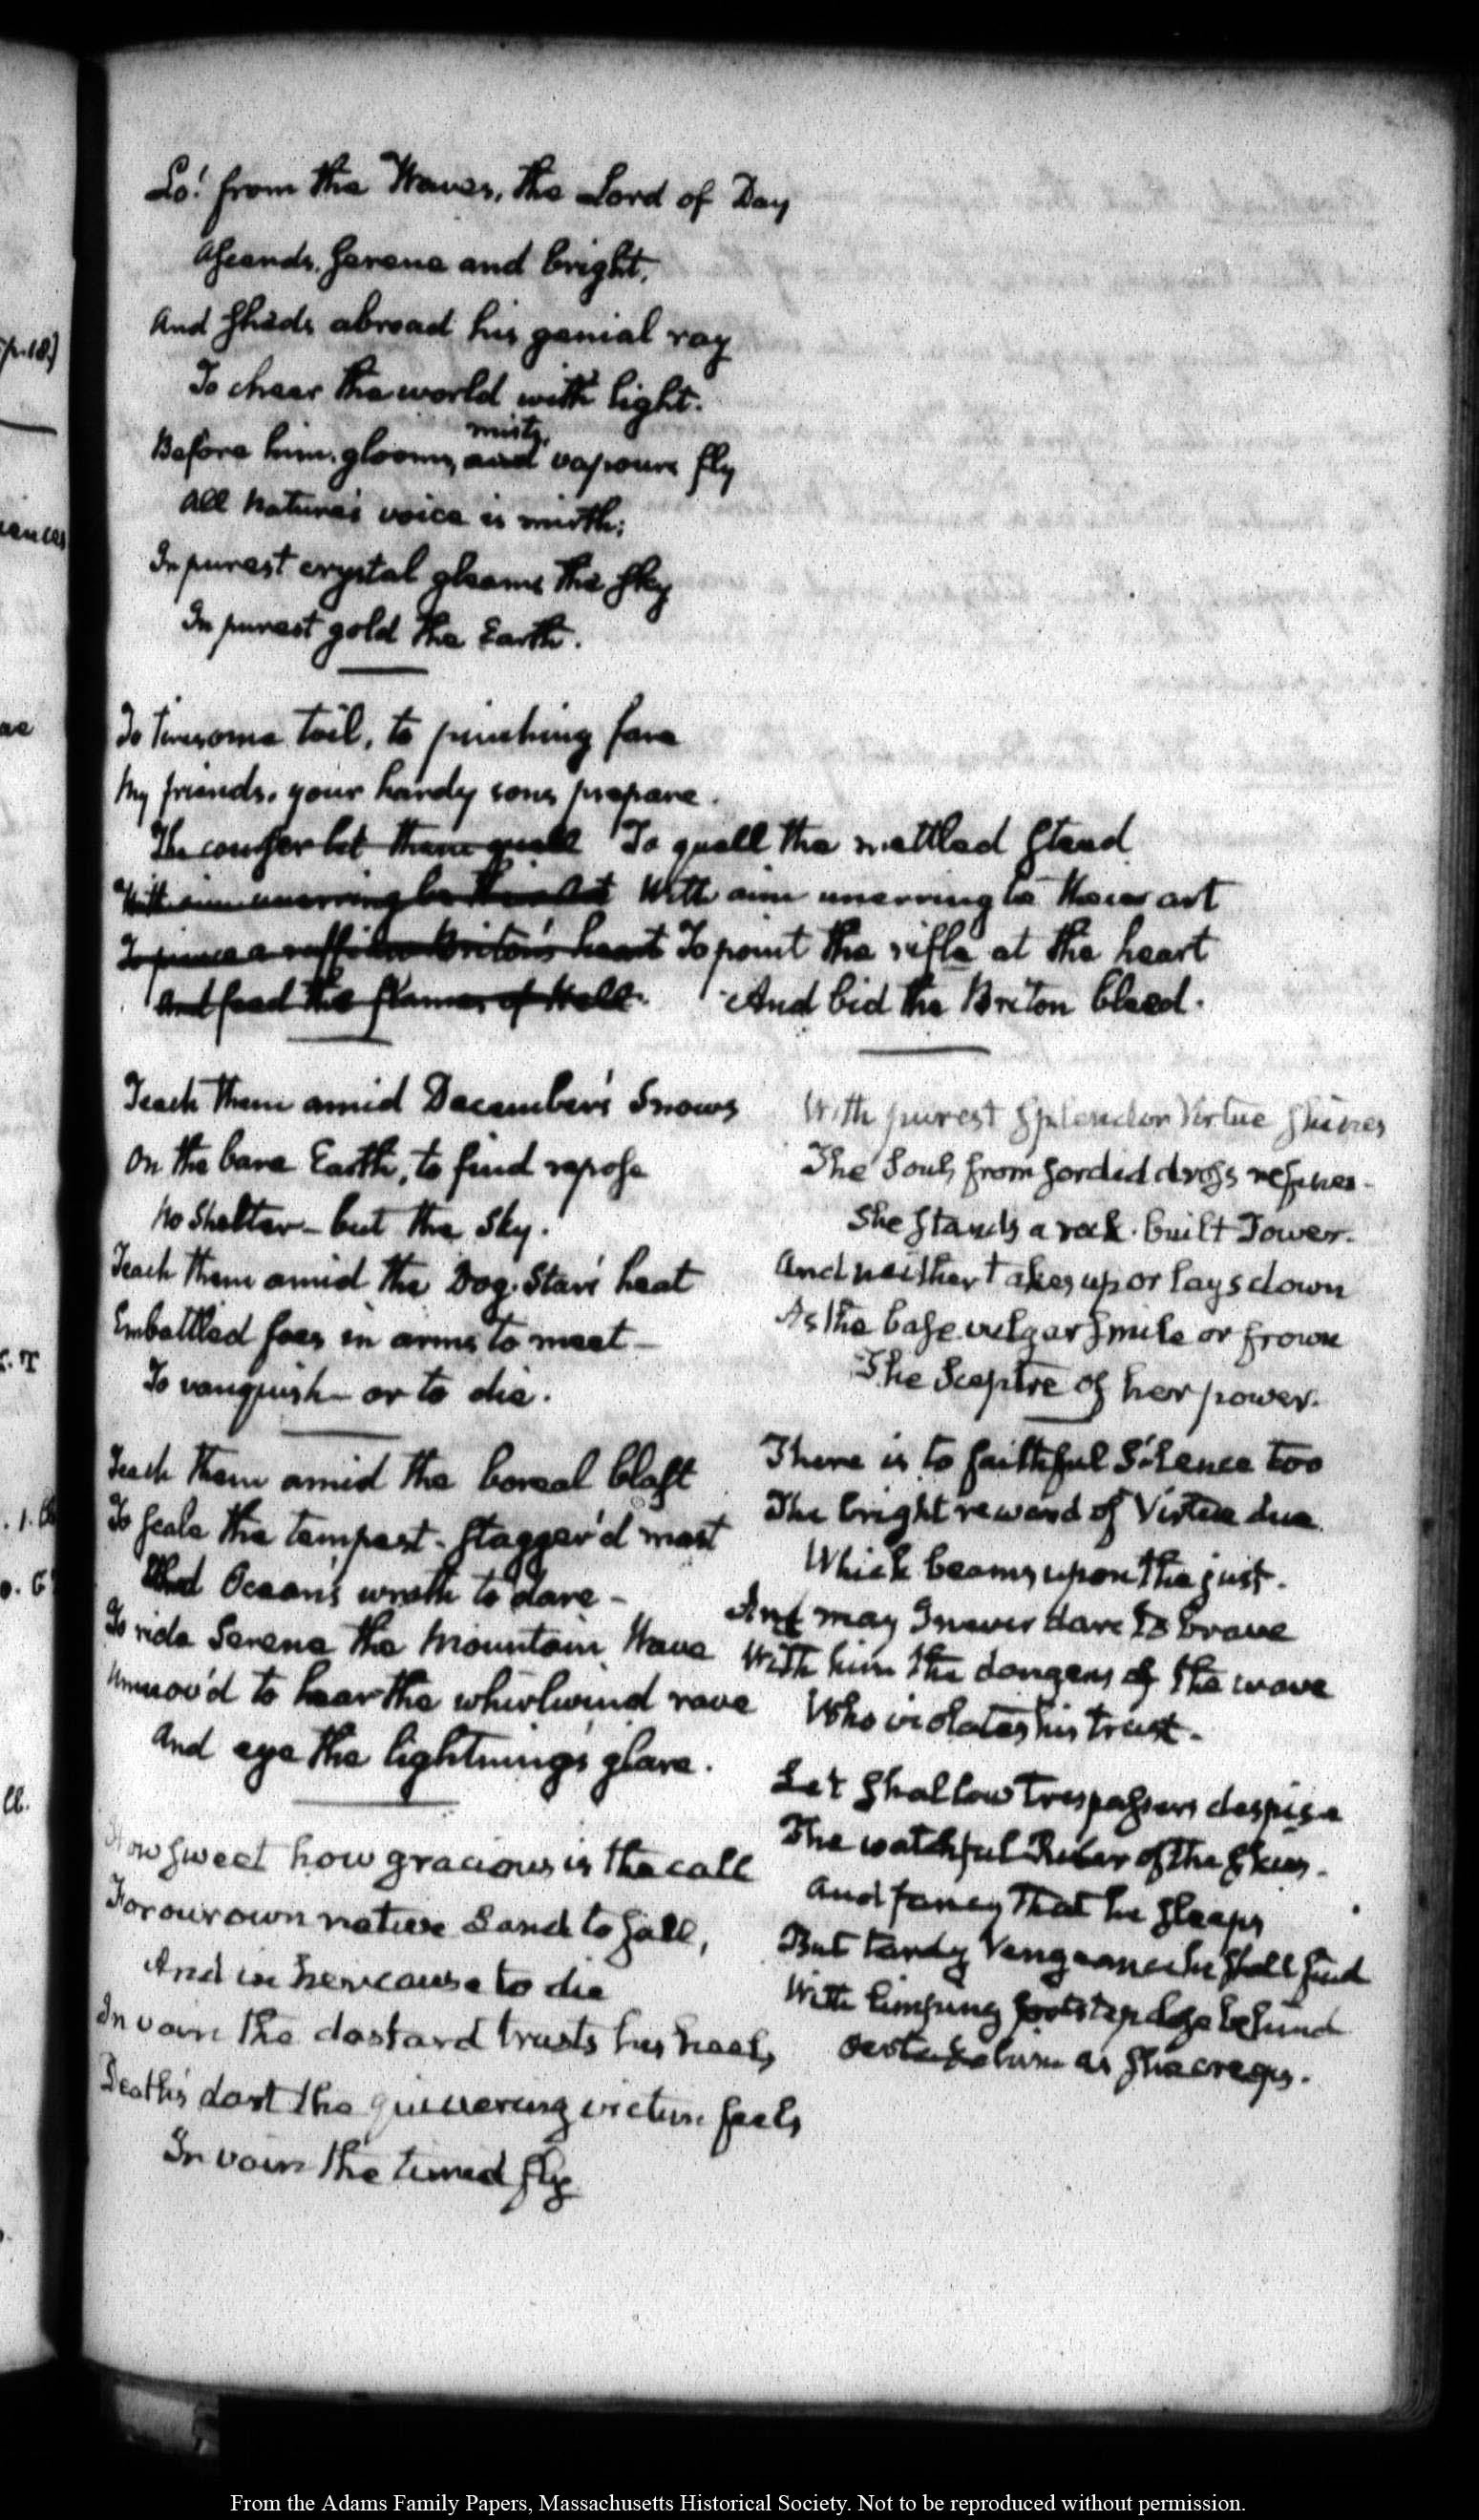 Lo! from the Waves, the Lord of Day
Ascends, serene and bright,
And sheds abroad his genial ray
To chear the world with light.
mists,
Before him, glooms, and vapours fly
All Nature's voice is mirth;
In purest crystal gleams the sky
In purest gold the Earth.
To tiresome toil, to pinching fare
My friends, your hardy sons prepare.
The courser let them quell To quell the mettled steed
With aim unerring be their Art With aim unerring be their art
To pierce a ruffian Briton's heart To point the rifle at the heart
And feed the flames of Hell. And bid the Briton bleed.
Teach them amid December's Snows
On the bare Earth, to find repose
No Shelter—but the Sky.
Teach them amid the Dog-Star's heat
Embattled foes in arms to meet—
To vanquish—or to die.
Teach them amid the boreal blast
To scale the tempest-stagger'd mast
And Ocean's wrath to dare—
To ride Serene the Mountain Wave
Unmov'd to hear the whirlwind rave
And eye the lightning's glare.
How sweet how gracious is the call
For our own native Land to fall,
And in her cause to die
In vain the dastard trusts his heels,
Death's dart the quivering victim feels,
In vain the timid fly
With purest splendor Virtue shines
The Soul, from sordid dross refines.
She stands a rock-built Tower.
And neither takes up or lays down
As the base vulgar smile or frown
The Sceptre of her power.
There is to faithful Silence too
The bright reward of Virtue due
Which beams upon the just.
And may I never dare to brave
With him the dangers of the wave
Who violates his trust.
Let shallow trespassers despise
The watchful Ruler of the skies.
And fancy that he sleeps
But tardy Vengeance he shall find
With limping footstep close behind
him as she creeps.
From the Adams Family Papers, Massachusetts Historical Society. Not to be reproduced without permission.